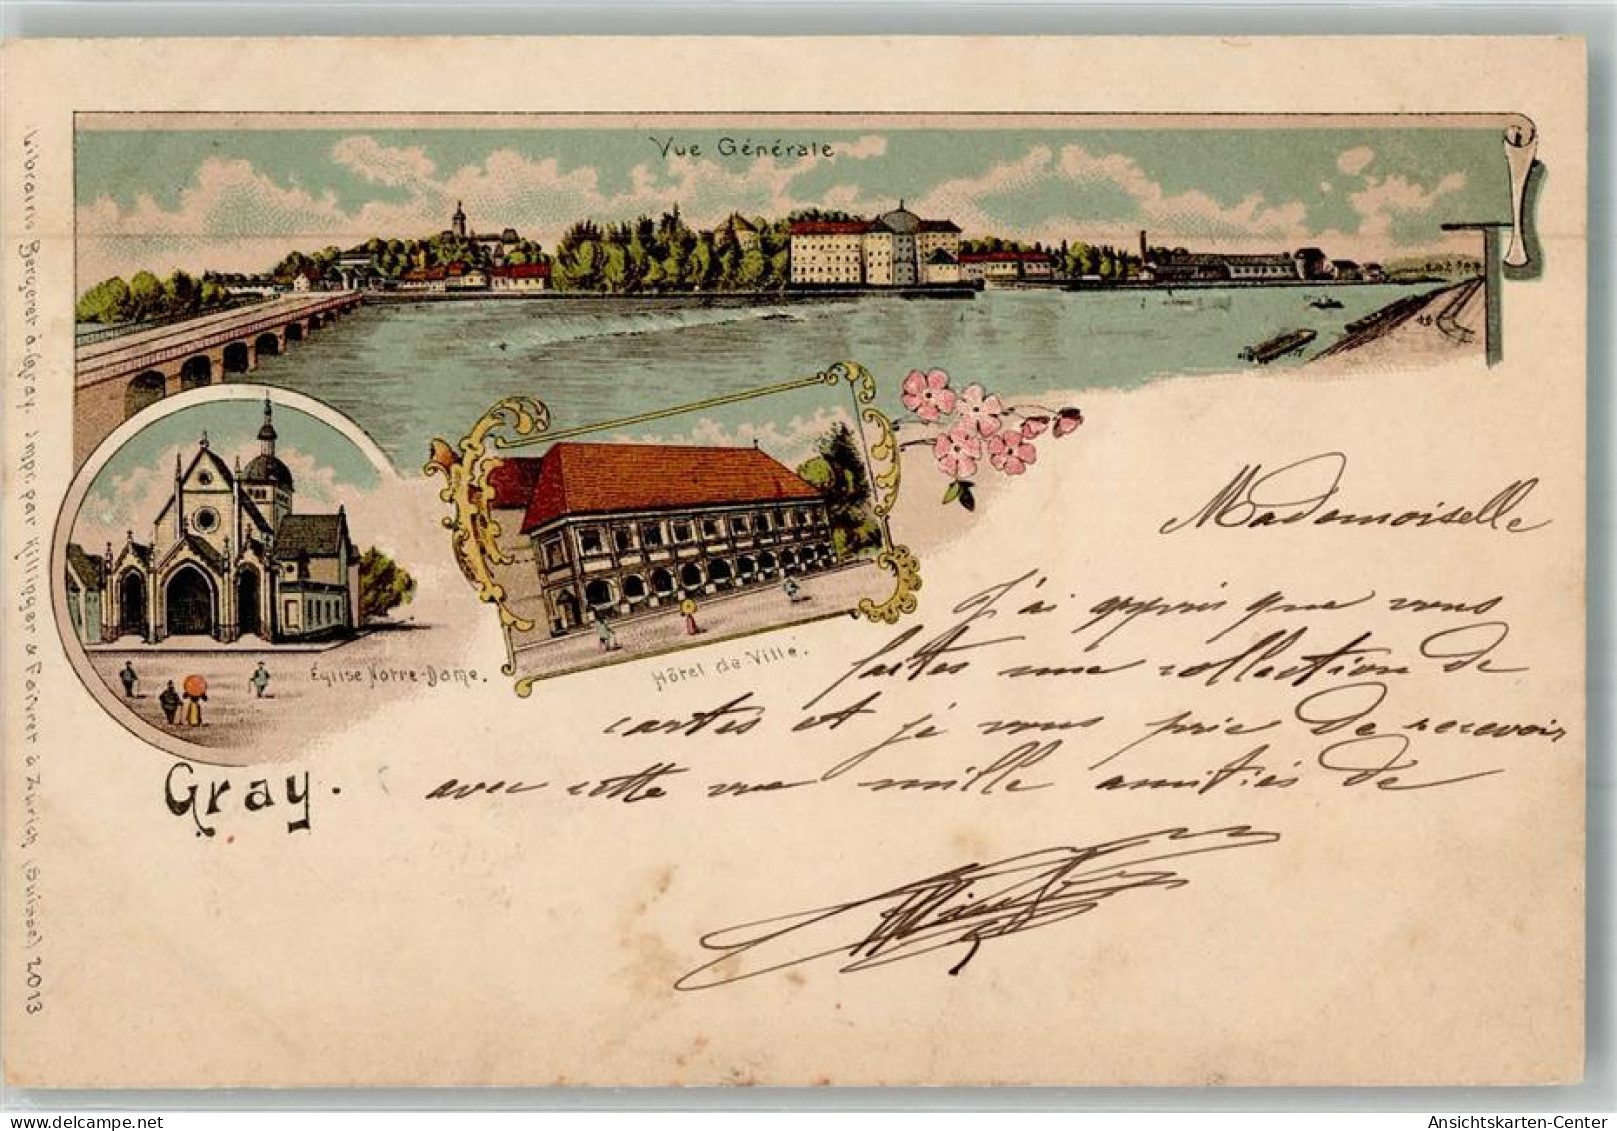 Vue Générale
Église Notre-Dame.
Hôtel de Ville.
Gray.
Mademoiselle
J'ai appris que vous
faites une collection de
cartes et je vous prie de recevoir
avec cette vue mille amitiés de
Librairie Bergeret à Gray. Impr. par Killinger & Faivret à Zurich, (Suisse) 2013
AnsichtskartenCenter